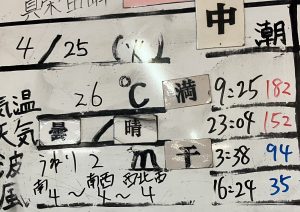 中潮
4/25(火)
気温 26℃ 満 9:25 182
天気 曇/晴 23:04 152
波 うねり2m 干 3:38 94
風 南4〜南西4〜西北西4 16:24 35